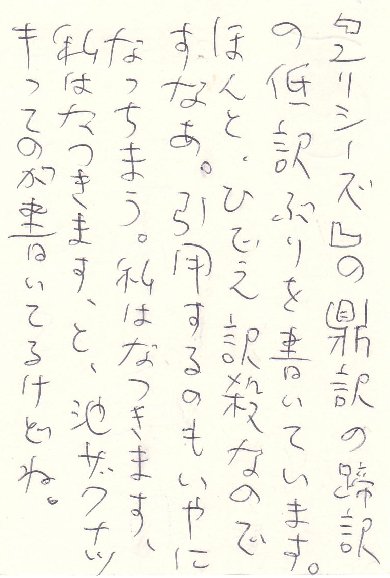 『ユリシーズ』の鼎訳の蹄訳
の低訳ぶりを書いています。
ほんと、ひでえ訳殺なので
すなあ。引用するのもいやに
なっちまう。私はなつきます、
私はなつきます、と、池ザワナツ
キってのが書いてるけどね。